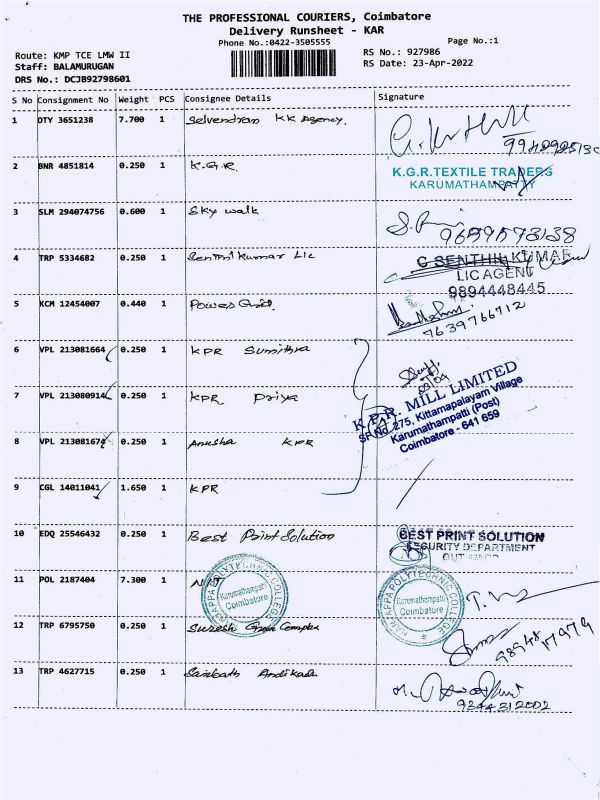 THE PROFESSIONAL COURIERS, Coimbatore
Delivery Runsheet - KAR
Phone No.:0422-3505555
Page No.:1
Route: KMP TCE LMW II
RS No.: 927986
Staff: BALAMURUGAN
RS Date: 23-Apr-2022
DRS No.: DCJB92798601
S No Consignment No Weight PCS Consignee Details Signature
1 DTY 3651238 7.700 1 Selvendran KK Agency.
2 BNR 4851814 0.250 1 K.G.R.
K.G.R.TEXTILE TRADERS
KARUMATHAMPATTY
3 SLM 294074756 0.600 1 Sky walk
4 TRP 5334682 0.250 1 Senthil kumar Lic
G SENTHIL KUMAR
LIC AGENT
9894448445
5 KCM 12454007 0.440 1 Power
7639766712
6 VPL 213081664 0.250 1 KPR Sumithra
7 VPL 213080914 0.250 1 KPR Priya
K.P.R. MILL LIMITED
SF No. 275, Kittampalayam Village
Karumathampatti (Post)
Coimbatore - 641 659
8 VPL 213081674 0.250 1 Anusha KPR
9 CGL 14011041 1.650 1 KPR
10 EDQ 25546432 0.250 1 Best Print Solution
BEST PRINT SOLUTION
SECURITY DEPARTMENT
11 POL 2187404 7.300 1
POLYTECHNIC COLLEGE
Karumathampatti
Coimbatore
POLYTECHNIC COLLEGE
Karumathampatti
Coimbatore
12 TRP 6795750 0.250 1 Suresh Complex
98948 17979
13 TRP 4627715 0.250 1 Sambath
9344312002